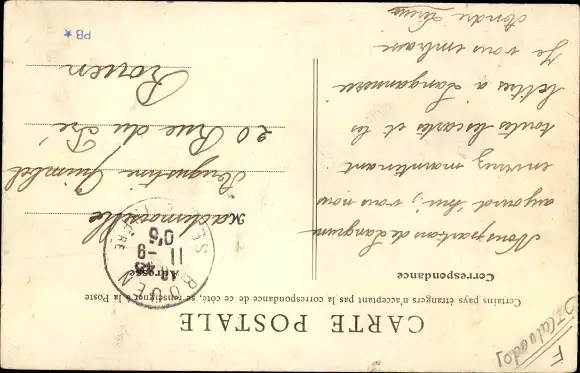 CARTE POSTALE
Certains pays étrangers n'acceptant pas la correspondance de ce côté, se renseigner à la Poste
Correspondance
Nous partons de Langrun
aujourd'hui, vous nous
enverrez maintenant
toutes les cartes et les
lettres a Langannerie
Je vous embrasse
Andre
Adresse
Mademoiselle
Augustine Quimbel
20 Rue du Pré
Rouen
ROUEN
11 - 9
05
PB*
F